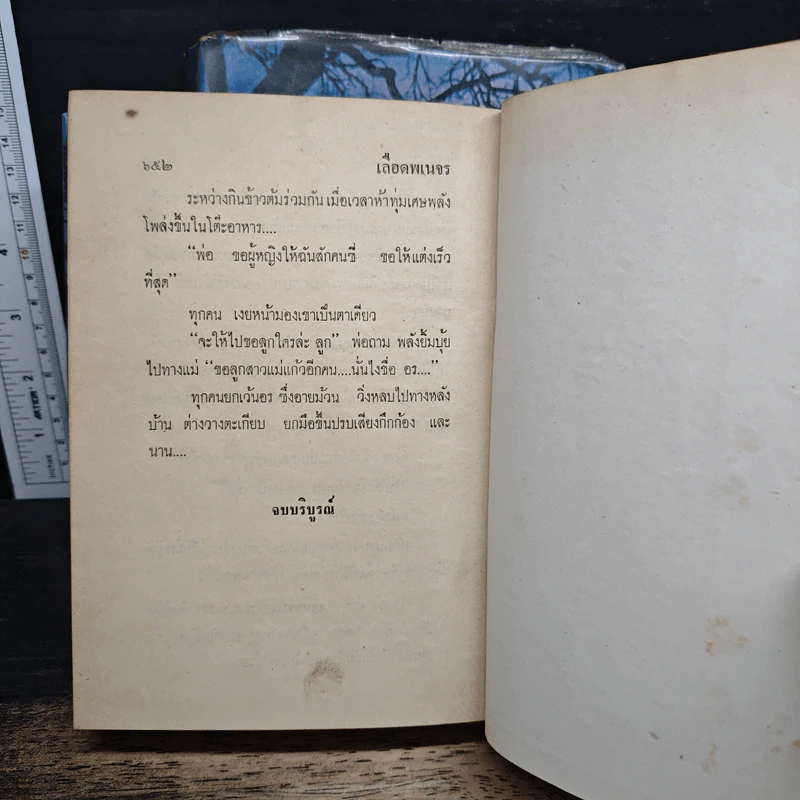 ๖๕๒ เลือดพเนจร
ระหว่างกินข้าวต้มร่วมกัน เมื่อเวลาห้าทุ่มเศษพลัง
โพล่งขึ้นในโต๊ะอาหาร....
“พ่อ ขอผู้หญิงให้ฉันสักคนซี่ ขอให้แต่งเร็ว
ที่สุด”
ทุกคน เงยหน้ามองเขาเป็นตาเดียว
“จะให้ไปขอลูกใครล่ะ ลูก” พ่อถาม พลังยิ้มบุ้ย
ไปทางแม่ “ขอลูกสาวแม่แก้วอีกคน....นั่นไงชื่อ อร....”
ทุกคนยกเว้นอร ซึ่งอายม้วน วิ่งหลบไปทางหลัง
บ้าน ต่างวางตะเกียบ ยกมือขึ้นปรบเสียงกึกก้อง และ
นาน....
จบบริบูรณ์